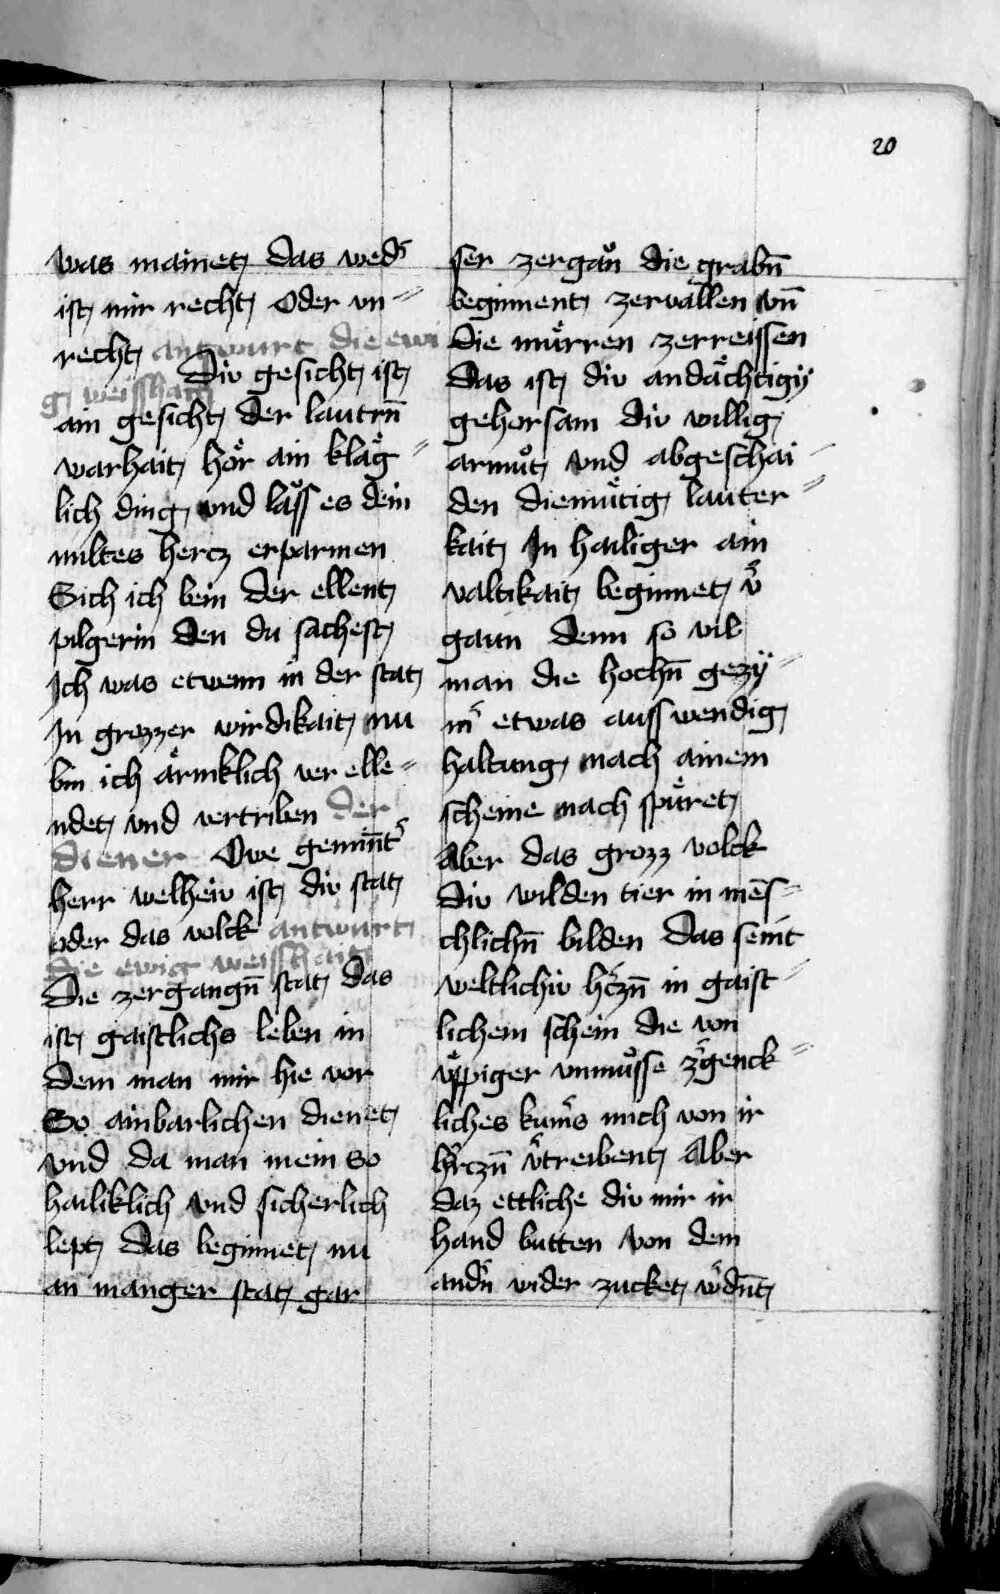 20
was mainet das wed᷑
ist mir recht Oder vn⸗
recht antwurt die ewi
g weisshait Div gesicht ist
ain gesicht der lautrn̄
warhait hoͤr ain klaͤg⸗
lich ding vnd laͤss es dein
miltes hercz erparmen
Sich ich bein der ellent
pilgerin den du sachest
Ich was etwenn in der stat
In grozzer wirdikait nu
bin ich aͤrmklich ver elle⸗
ndet vnd vertriben der
diener Owe geminnt᷑
herr welheiv ist div stat
oder das volck antwurt
die ewig weisshait
Die zergangn̄ stat das
ist gaistlichs leben in
dem man mir hie vor
So ainbarlichen dienet
vnd da man mein so
hailiklich vnd sicherlich
lept das beginnet nu
an manger stat gar
ser zergaͦn die grabn̄
beginnent zervaͤllen vn̄
die muͤrren zerreissen
Das ist div andaͤchtigiv
gehorsam div willig
armuͦt vnd abgeschai⸗
den diemuͤtig lauter⸗
kait In hailiger ain
valtikait beginnet v᷑
gaun denn so vil
man die hochn̄ gezÿ⸗
m᷑ etwas auss wendig
haltung nach ainem
scheine nach spuͤret
Aber das grozz volck
div wilden tier in mēs⸗
chlichn̄ bilden Das seint
weltlichiv h᷑czn̄ in gaist⸗
lichem schein die von
vͤppiger vnmuͦsse z᷑genck⸗
liches kum᷑s mich von ir
h᷑rczn̄ v᷑treibent Aber
daz ettliche div mir ir
hand butten von dem
andn᷑ wider zucket w᷑dnt